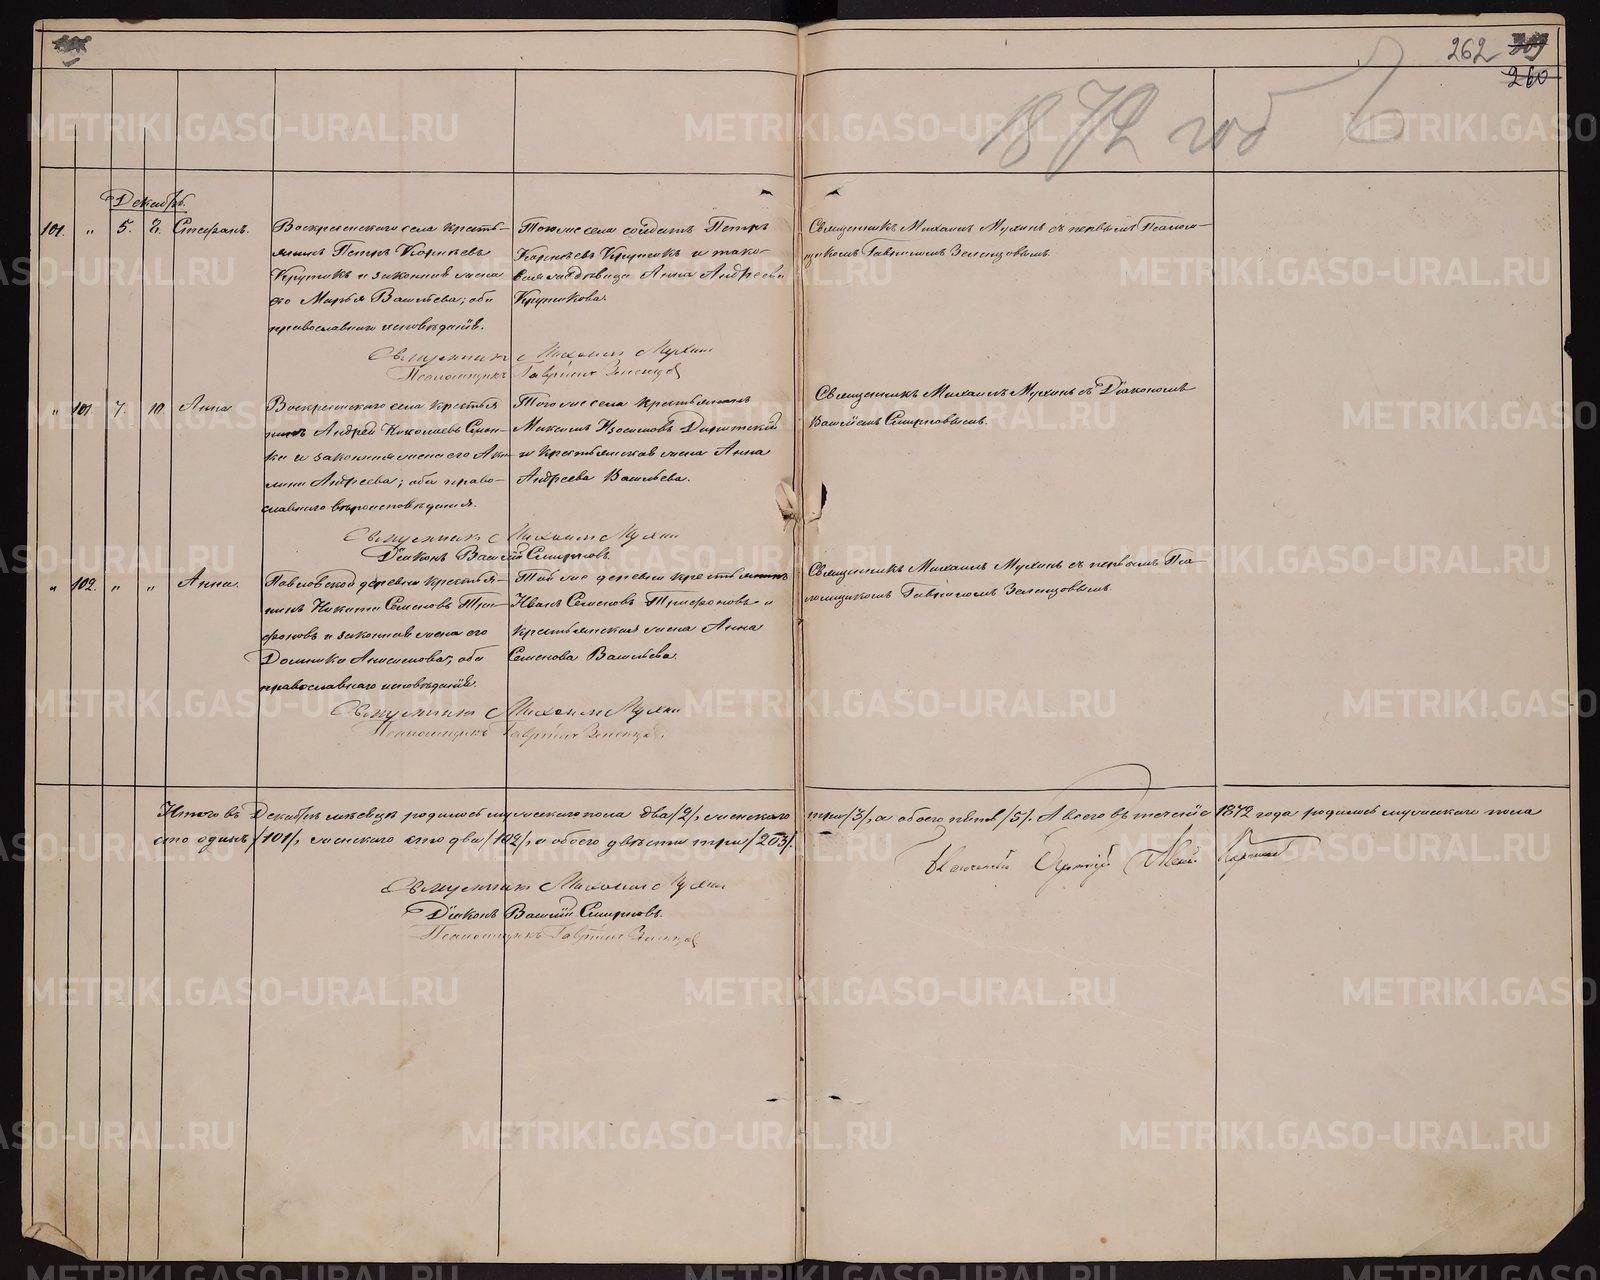 262 309
260
1872 год
Декабрь.
101. " 5. 8. Стефанъ.
Воскресенскаго села крестья-
нинъ Петръ Корнѣевъ
Крутикъ и законная жена
его Марья Васильева; оба
православнаго исповѣданія.
Того же села солдатъ Петръ
Корнѣевъ Крутикъ и
Анна Андреева
Крутикова.
Священникъ Михаилъ Мухинъ съ первымъ Псалом-
щикомъ Гавріиломъ Зеленцовымъ.
Священникъ Михаилъ Мухинъ
Псаломщикъ Гавріилъ Зеленцовъ
" 101. 7. 10 Анна
Воскресенскаго села крестья
нинъ Андрей Николаевъ
и законная жена его Аки-
лина Андреева; оба право-
славнаго вѣроисповѣданія.
Того же села крестьянинъ
Максимъ Изосимовъ
и крестьянская жена Анна
Андреева Васильева.
Священникъ Михаилъ Мухинъ съ Діакономъ
Василіемъ Смирновымъ.
Священникъ Михаилъ Мухинъ
Діаконъ Василій Смирновъ.
" 102. " " Анна.
Павловской деревни крестья-
нинъ Никита Семеновъ Три-
фоновъ и законная жена его
Домника Анисимова; оба
православнаго исповѣданія.
Той же деревни крестьянинъ
Иванъ Семеновъ Трифоновъ и
крестьянская жена Анна
Семенова Васильева.
Священникъ Михаилъ Мухинъ съ первымъ Пса
ломщикомъ Гавріиломъ Зеленцовымъ.
Священникъ Михаилъ Мухинъ
Псаломщикъ Гавріилъ Зеленцовъ.
Итого въ Декабрѣ мѣсяцѣ родилось мужескаго пола два /2/, женскаго три /3/, а обоего пять /5/. А всего въ теченіе 1872 года родилось мужескаго пола
сто одинъ /101/, женскаго сто два /102/, а обоего двѣсти три /203/.
Священникъ Михаилъ Мухинъ
Діаконъ Василій Смирновъ.
Псаломщикъ Гавріилъ Зеленцовъ
METRIKI.GASO-URAL.RU